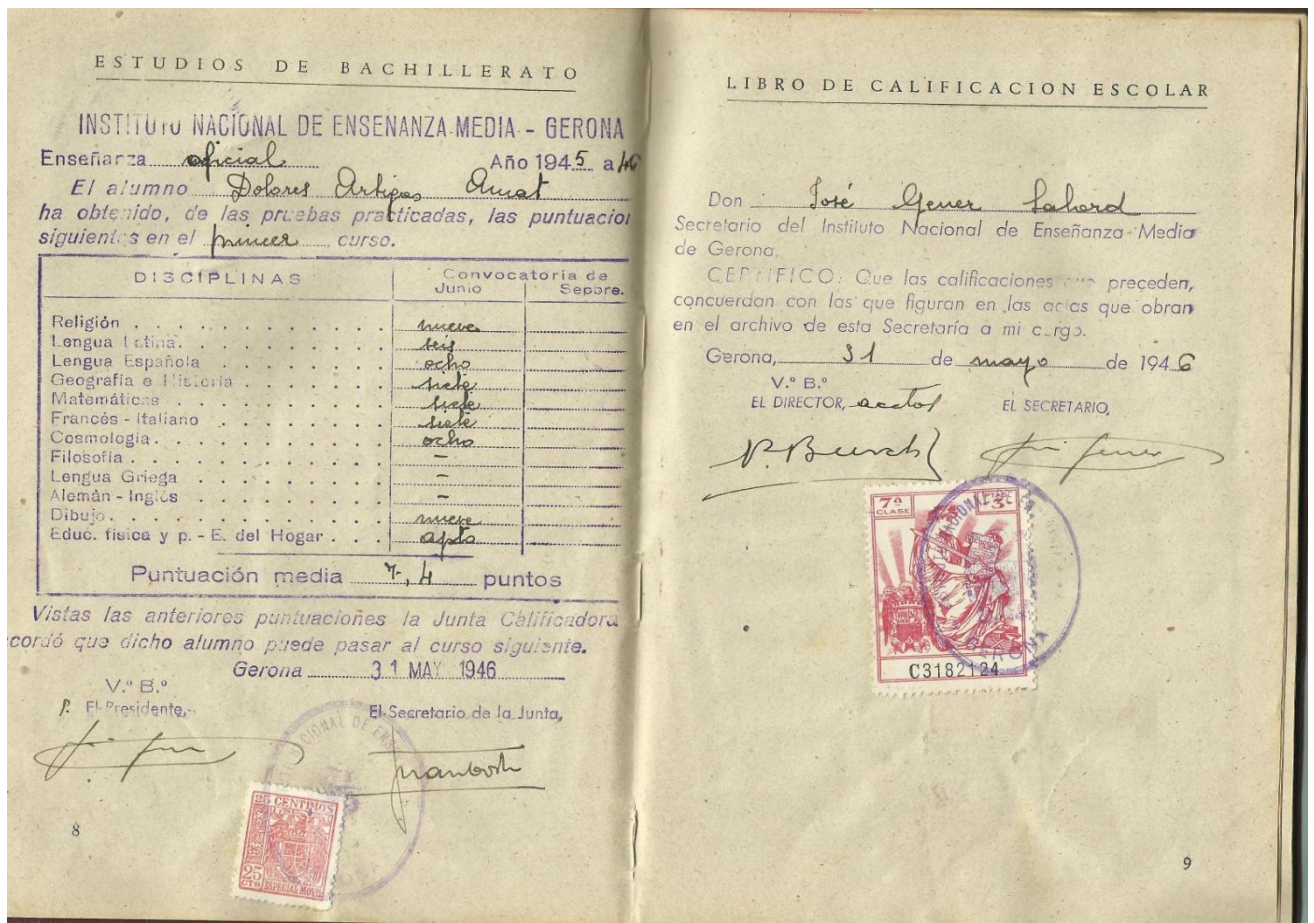 ESTUDIOS DE BACHILLERATO
INSTITUTO NACIONAL DE ENSEÑANZA MEDIA - GERONA
Enseñanza oficial Año 1945 a 46
El alumno Dolores Artigas Amat
ha obtenido, de las pruebas practicadas, las puntuacion
siguientes en el primer curso.
DISCIPLINAS Convocatoria de
Junio Sepbre.
Religión nueve
Lengua Latina. seis
Lengua Española ocho
Geografía e Historia siete
Matemáticas siete
Francés - Italiano siete
Cosmología. ocho
Filosofía. -
Lengua Griega -
Alemán - Inglés -
Dibujo. nueve
Educ. física y p. - E. del Hogar apto
Puntuación media 7,4 puntos
Vistas las anteriores puntuaciones la Junta Calificadora
cordó que dicho alumno puede pasar al curso siguiente.
Gerona 31 MAY 1946
V.º B.º
P. El Presidente, El Secretario de la Junta,
25 CENTIMOS
25 CTS ESPECIAL MOVIL
8
LIBRO DE CALIFICACION ESCOLAR
Don José Gener
Secretario del Instituto Nacional de Enseñanza Media
de Gerona,
CERTIFICO: Que las calificaciones que preceden,
concuerdan con las que figuran en las actas que obran
en el archivo de esta Secretaría a mi cargo.
Gerona, 31 de mayo de 1946
V.º B.º
EL DIRECTOR, acctal EL SECRETARIO,
7ª CLASE
NACIONAL DE EN
GERONA
C3182124
9